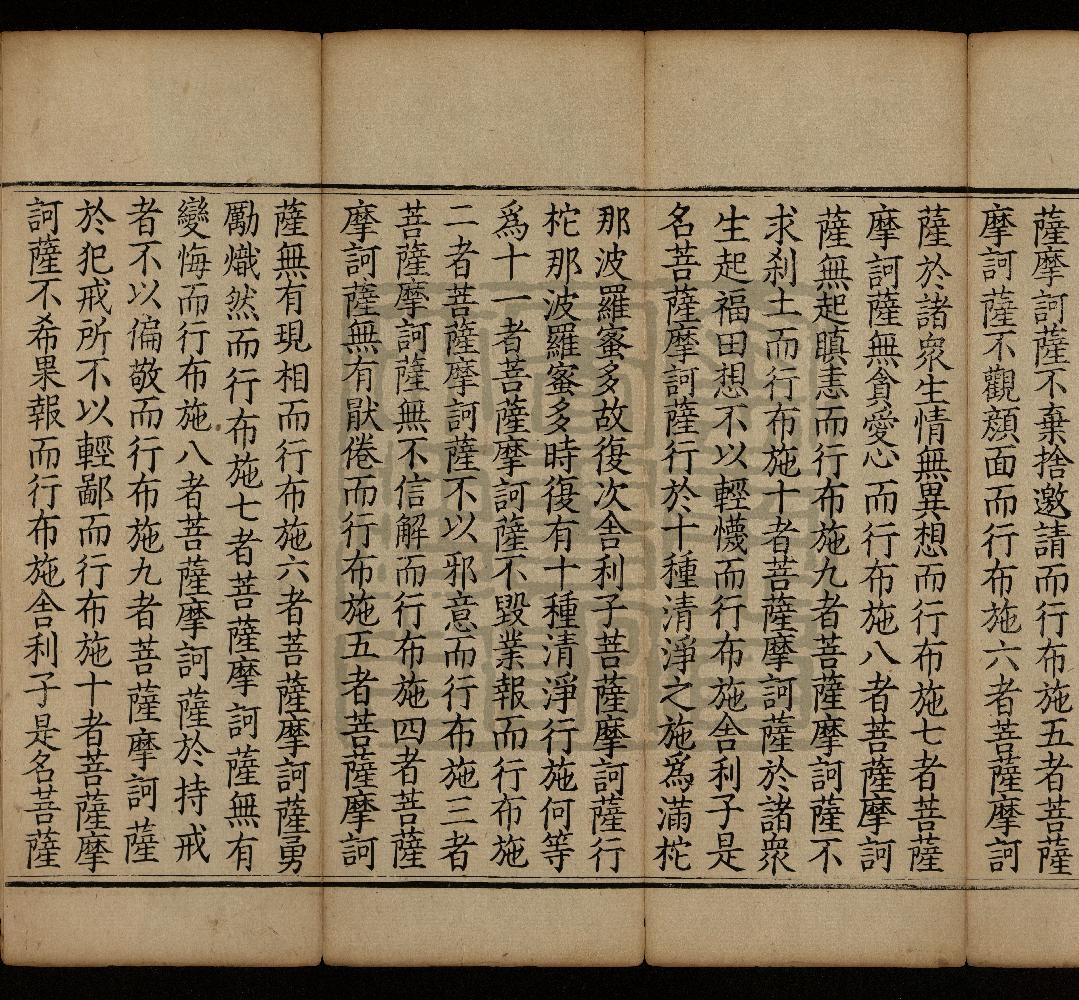 薩摩訶薩不棄捨邀請而行布施五者菩薩
摩訶薩不觀顏面而行布施六者菩薩摩訶
薩於諸衆生情無異想而行布施七者菩薩
摩訶薩無貪愛心而行布施八者菩薩摩訶
薩無起瞋恚而行布施九者菩薩摩訶薩不
求刹土而行布施十者菩薩摩訶薩於諸衆
生起福田想不以輕懱而行布施舍利子是
名菩薩摩訶薩行於十種清淨之施爲滿柁
那波羅蜜多故復次舍利子菩薩摩訶薩行
柁那波羅蜜多時復有十種清淨行施何等
爲十一者菩薩摩訶薩不毀業報而行布施
二者菩薩摩訶薩不以邪意而行布施三者
菩薩摩訶薩無不信解而行布施四者菩薩
摩訶薩無有猒倦而行布施五者菩薩摩訶
薩無有現相而行布施六者菩薩摩訶薩勇
勵熾然而行布施七者菩薩摩訶薩無有
變悔而行布施八者菩薩摩訶薩於持戒
者不以偏敬而行布施九者菩薩摩訶薩
於犯戒所不以輕鄙而行布施十者菩薩摩
訶薩不希果報而行布施舍利子是名菩薩